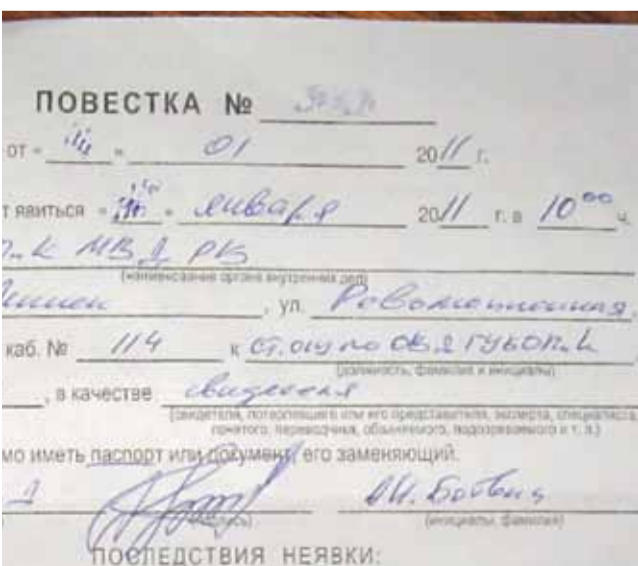 ПОВЕСТКА №
от « » 01 2011 г.
т явиться « » января 2011 г. в 10 00 ч.
п.к МВД РБ
(наименование органа внутренних дел)
, ул. Революционная,
каб. № 114 к ст. о/у по ОВД ГУБОПиК
(должность, фамилия и инициалы)
, в качестве свидетеля
(свидетеля, потерпевшего или его представителя, эксперта, специалиста,
понятого, переводчика, обвиняемого, подозреваемого и т. п.)
мо иметь паспорт или документ, его заменяющий.
(подпись) (инициалы, фамилия)
ПОСЛЕДСТВИЯ НЕЯВКИ: